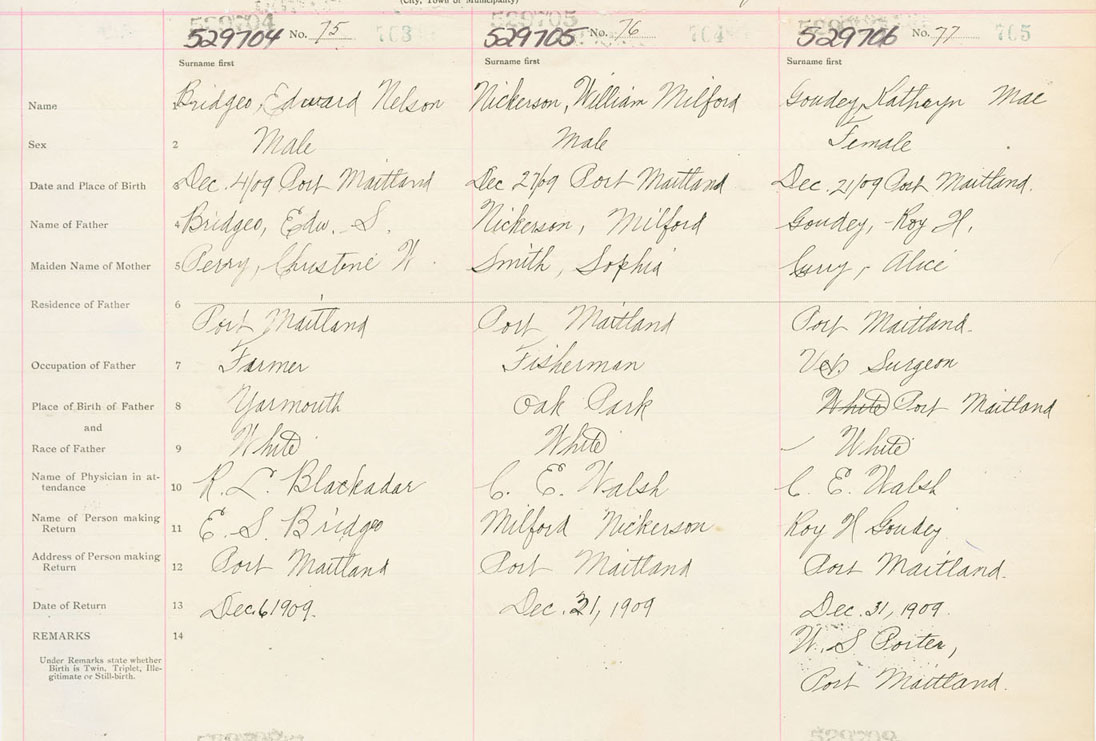 (City, Town or Municipality)
529704 No. 75 703 529705 No. 76 704 529706 No. 77 705
Surname first Surname first Surname first
Name 1 Bridgeo, Edward Nelson Nickerson, William Milford Goudey, Kathryn Mae
Sex 2 Male Male Female
Date and Place of Birth 3 Dec. 4/09 Port Maitland Dec 27/09 Port Maitland Dec. 21/09 Port Maitland.
Name of Father 4 Bridgeo, Edw. S. Nickerson, Milford Goudey, Roy H.
Maiden Name of Mother 5 Perry, Christene W. Smith, Sophia Alice
Residence of Father 6 Port Maitland Port Maitland Port Maitland.
Occupation of Father 7 Farmer Fisherman Surgeon
Place of Birth of Father 8 Yarmouth Oak Park White Port Maitland
and
Race of Father 9 White White White
Name of Physician in at-
tendance 10 R. L. Blackadar C. E. Walsh C. E. Walsh
Name of Person making
Return 11 E. S. Bridgeo Milford Nickerson Roy H Goudey
Address of Person making
Return 12 Port Maitland Port Maitland Port Maitland.
Date of Return 13 Dec. 6 1909. Dec. 31, 1909 Dec. 31, 1909.
REMARKS 14 W. S Porter,
Under Remarks state whether
Birth is Twin, Triplet, Ille-
gitimate or Still-birth.
Port Maitland.